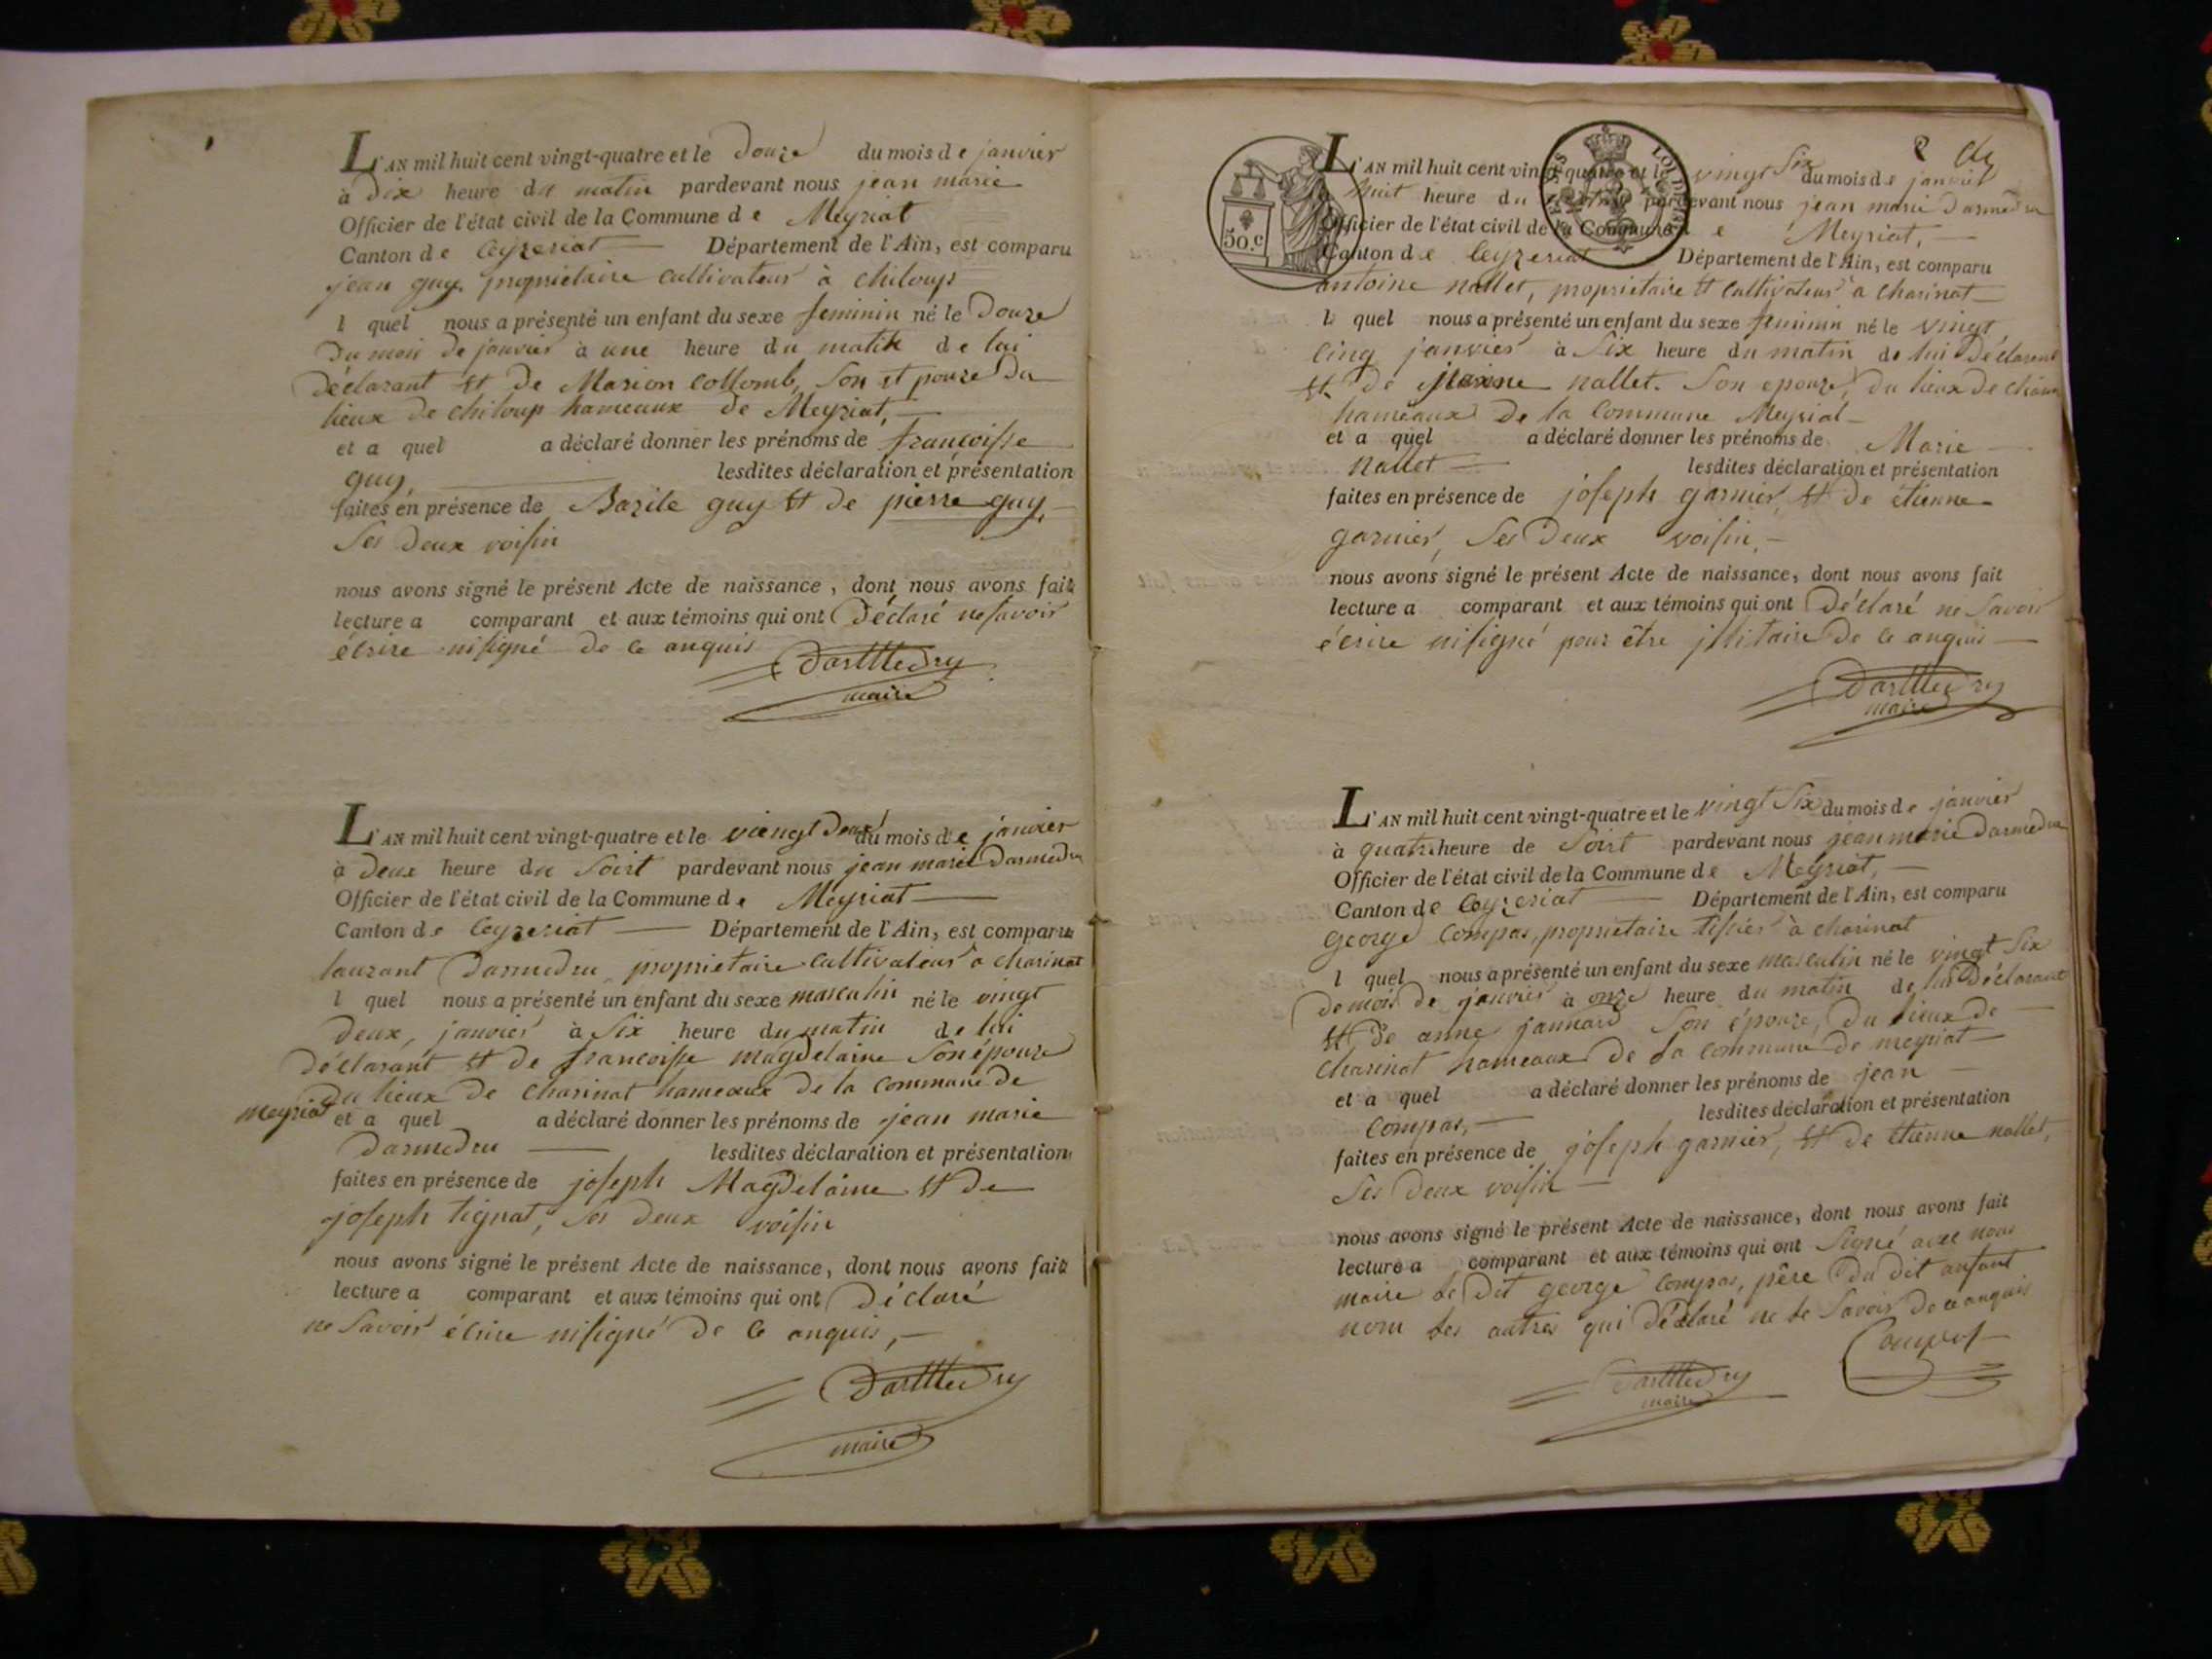 L'AN mil huit cent vingt-quatre et le Douze du mois de janvier
à Dix heure du matin pardevant nous jean marie
Officier de l'état civil de la Commune de Meyriat
Canton de Ceyzeriat Département de l'Ain, est comparu
jean guy propriétaire cultivateur à chiloup
l quel nous a présenté un enfant du sexe feminin né le Douze
Du mois De janvier à une heure du matin de lui
Déclarant et de Marion Collomb, Son et pouze Du
lieux de chiloup hameaux de Meyriat,
et a quel a déclaré donner les prénoms de françoisse
guy, lesdites déclaration et présentation
faites en présence de Bazile guy et de pierre guy,
Ses Deux voisin
nous avons signé le présent Acte de naissance, dont nous avons fait
lecture a comparant et aux témoins qui ont Déclaré ne savoir
écrire nisigné de ce anquis
Darmedru
maire
L'AN mil huit cent vingt-quatre et le viengt Deux du mois de janvier
à Deux heure du Soirt pardevant nous jean marie Darmedru
Officier de l'état civil de la Commune de Meyriat
Canton de Ceyzeriat Département de l'Ain, est comparu
laurant Darmedru propriétaire Cultivateur a charinat
l quel nous a présenté un enfant du sexe masculin né le vingt
Deux, janvier à Six heure du matin de lui
Déclarant et de francoisse magdelaine Son épouze
Du lieux De charinat hameaux De la commune De
meyriat et a quel a déclaré donner les prénoms de jean marie
Darmedru lesdites déclaration et présentation
faites en présence de joseph Magdelaine et De
joseph tignat, Ses Deux voisin
nous avons signé le présent Acte de naissance, dont nous avons fait
lecture a comparant et aux témoins qui ont Déclaré
ne Savoir écrire nisigné De ce anquis,
Darmedru
maire
2
50.c
L'AN mil huit cent vingt-quatre et le vingt Six du mois de janvier
huit heure du pardevant nous jean marie Darmedru
Officier de l'état civil de la Commune de Meyriat,
Canton de Ceyzeriat Département de l'Ain, est comparu
antoine nallet, propriétaire et Cultivateur a charinat
le quel nous a présenté un enfant du sexe feminin né le vingt
Cinq janvier à Six heure du matin de lui Déclarant
et De nallet. Son epouze, du lieux De
hameaux De la Commune Meyriat
et a quel a déclaré donner les prénoms de Marie
Nallet lesdites déclaration et présentation
faites en présence de joseph garnier, et De étienne
garnier, Ses Deux voisin,
nous avons signé le présent Acte de naissance, dont nous avons fait
lecture a comparant et aux témoins qui ont Déclaré ne Savoir
écrire nisigné pour être jllitaire De ce anquis
Darmedru
maire
L'AN mil huit cent vingt-quatre et le vingt Six du mois de janvier
à quatre heure de Soirt pardevant nous jean marie Darmedru
Officier de l'état civil de la Commune de Meyriat,
Canton de Ceyzeriat Département de l'Ain, est comparu
George Compas, propriétaire tissier à charinat
l quel nous a présenté un enfant du sexe masculin né le vingt Six
De mois De janvier à onze heure du matin de lui Déclarant
et De anne jannard Son épouze, Du lieux De
Charinat hameaux De la commune De meyriat
et a quel a déclaré donner les prénoms de jean
Compas, lesdites déclaration et présentation
faites en présence de joseph garnier, et De étienne nallet,
Ses Deux voisin
nous avons signé le présent Acte de naissance, dont nous avons fait
lecture a comparant et aux témoins qui ont Signé avec nous
maire le Dit george Compas, père Du dit anfant
nom les autres qui Déclaré ne le Savoir De ce anquis
Darmedru
maire
Compas